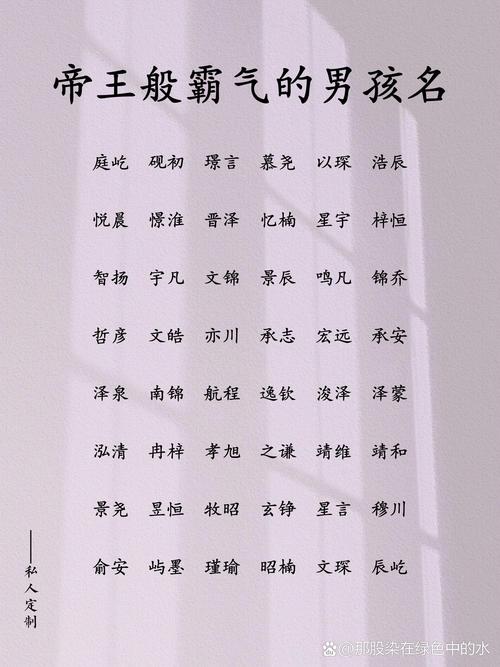 帝王般霸气的男孩名
庭屹 砚初 璟言 慕尧 以琛 浩辰
悦晨 憬淮 晋泽 忆楠 星宇 梓恒
智扬 宇凡 文锦 景辰 鸣凡 锦乔
哲彦 文皓 亦川 承志 宏远 承安
泽泉 南锦 航程 逸钦 浚泽 泽蒙
泓清 冉梓 孝旭 之谦 靖维 靖和
景尧 昱恒 牧昭 玄铮 星言 穆川
俞安 屿墨 瑾瑜 昭楠 文琛 辰屹
——私人定制
@那股染在绿色中的水